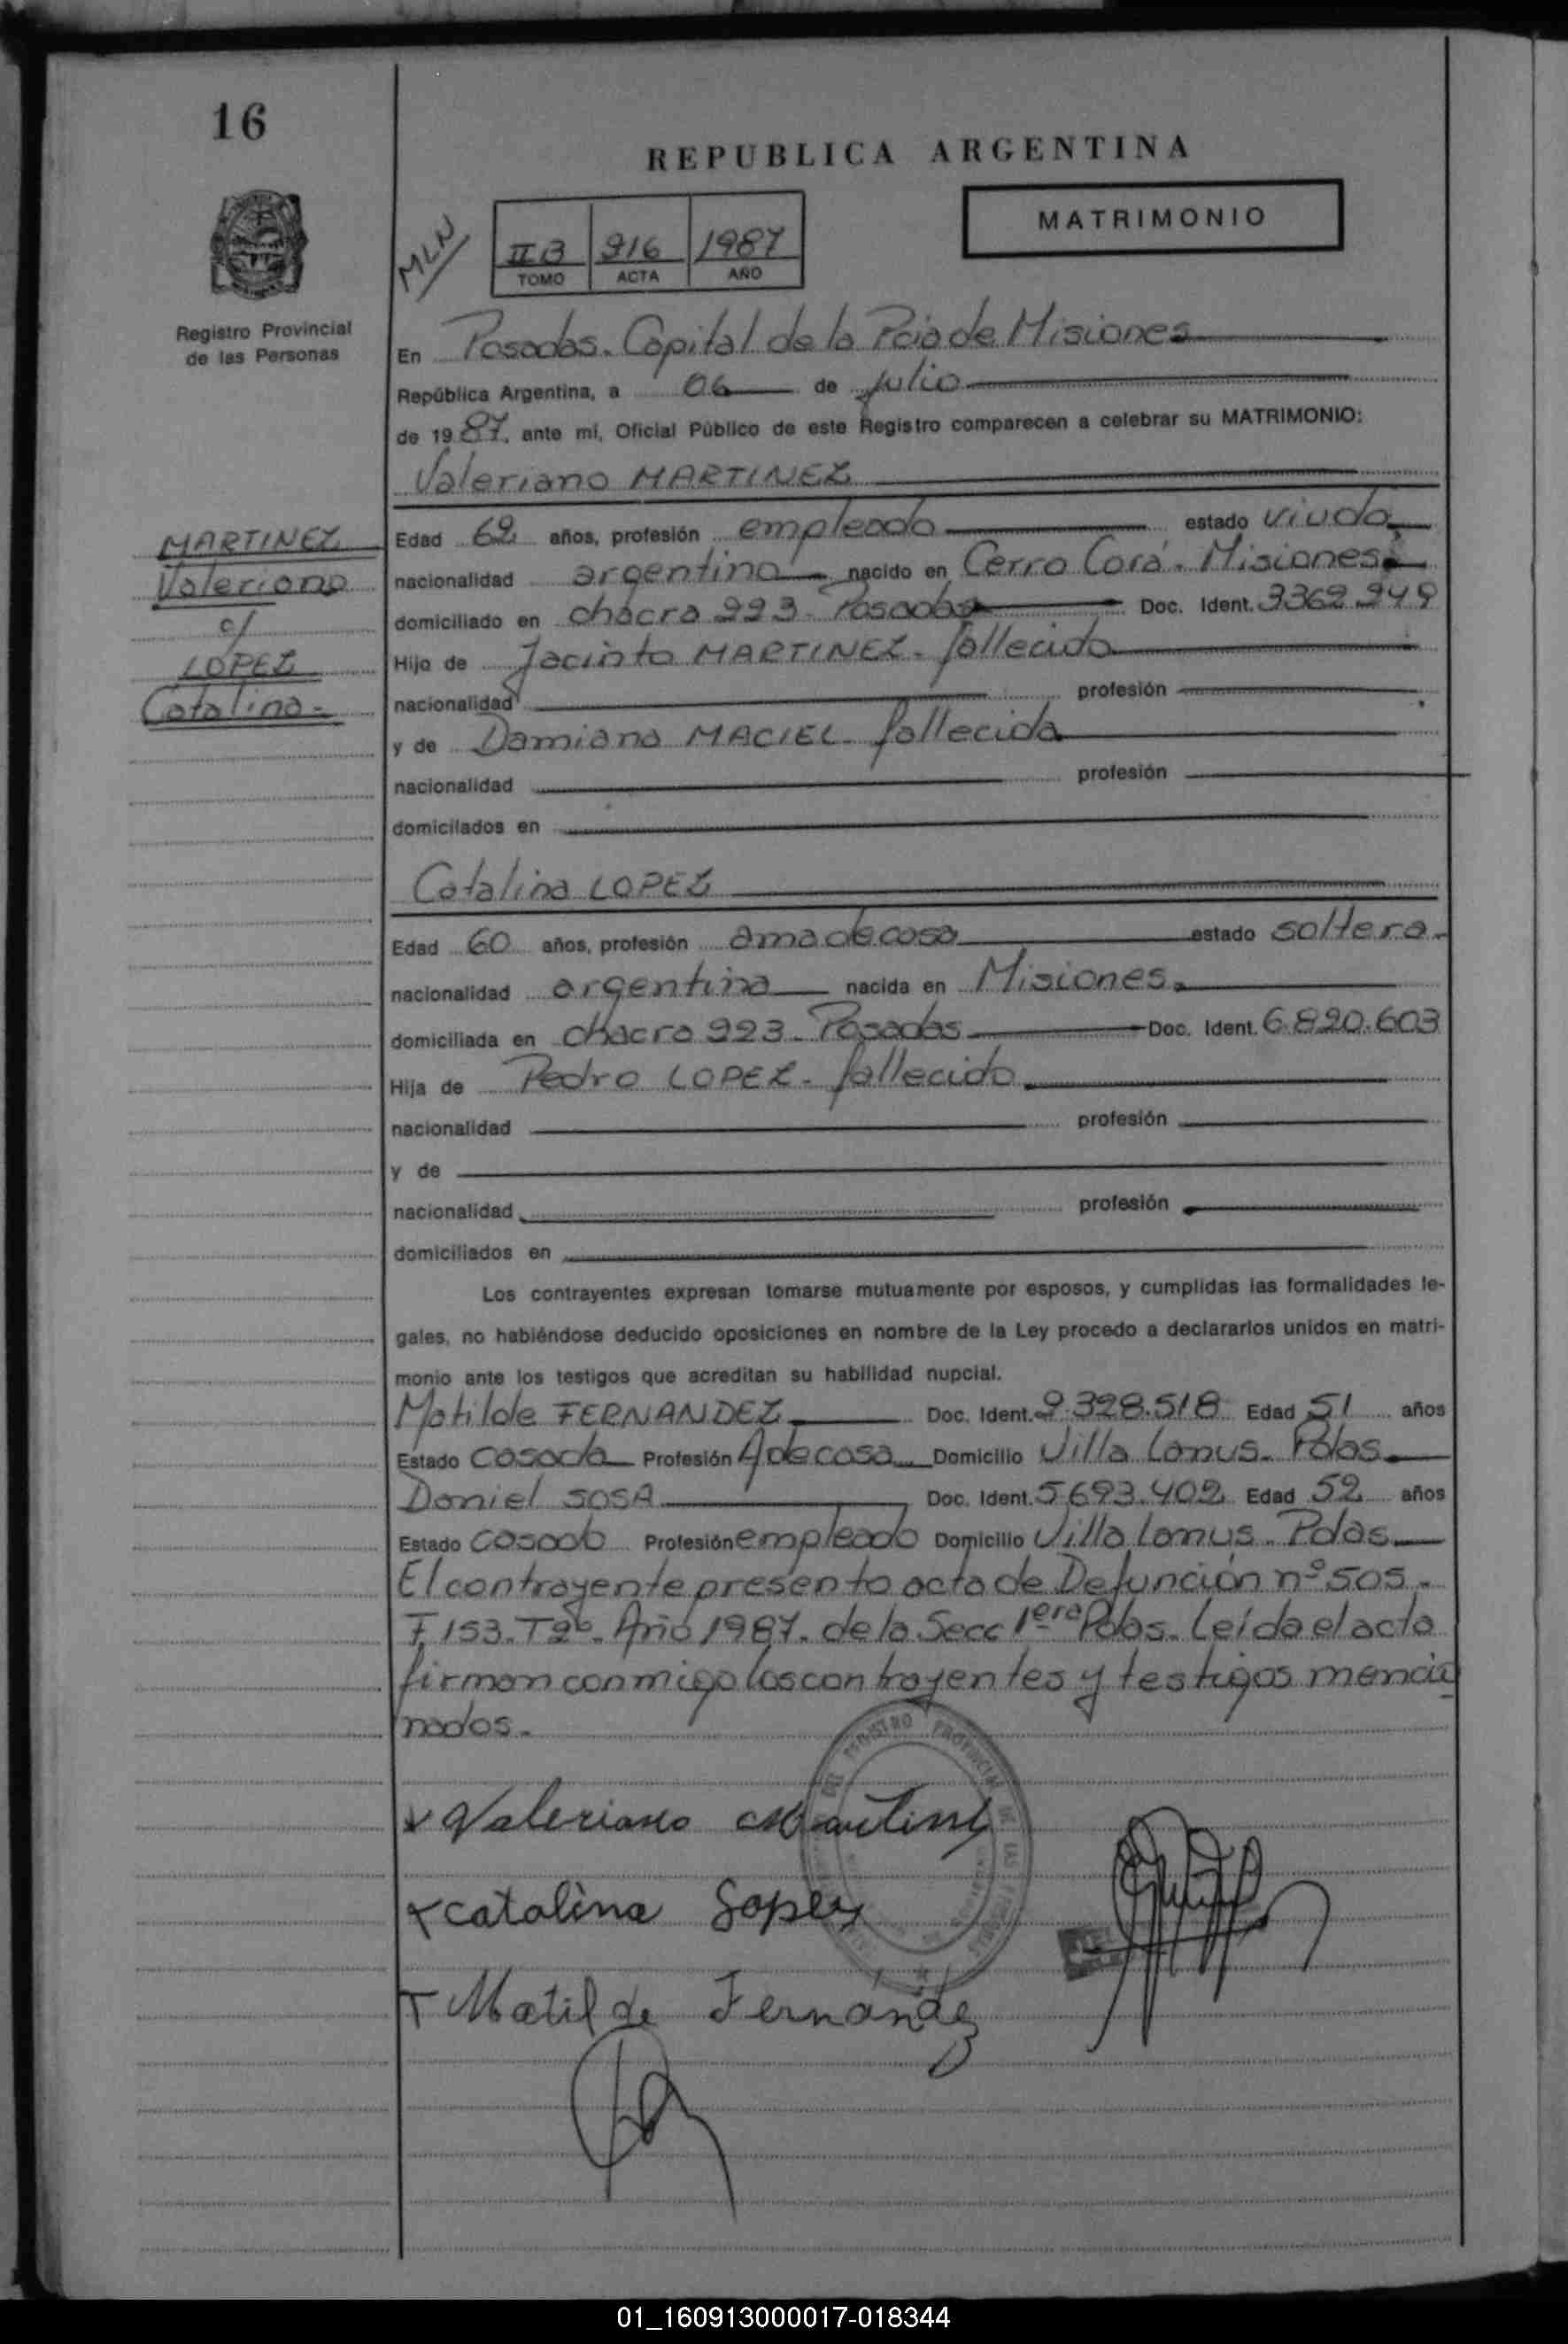 16
REPUBLICA ARGENTINA
MATRIMONIO
MLN
II B 216 1987
TOMO ACTA AÑO
Registro Provincial
de las Personas
En Posadas. Capital de la Pcia de Misiones
República Argentina, a 06 de julio
de 1987. ante mí, Oficial Público de este Registro comparecen a celebrar su MATRIMONIO:
Valeriano MARTINEZ
MARTINEZ
Valeriano
c/
LOPEZ
Catalina.-
Edad 62 años, profesión empleado estado viudo
nacionalidad argentino nacido en Cerro Corá. Misiones
domiciliado en chacra 223. Posadas Doc. Ident. 3362.249
Hijo de Jacinto MARTINEZ. fallecido
nacionalidad profesión
y de Damiana MACIEL. fallecida
nacionalidad profesión
domicilados en
Catalina LOPEZ
Edad 60 años, profesión ama de casa estado soltera.
nacionalidad argentina nacida en Misiones.
domiciliada en chacra 223. Posadas Doc. Ident. 6.820.603
Hija de Pedro LOPEZ. fallecido
nacionalidad profesión
y de
nacionalidad profesión
domiciliados en
Los contrayentes expresan tomarse mutuamente por esposos, y cumplidas las formalidades le-
gales, no habiéndose deducido oposiciones en nombre de la Ley procedo a declararlos unidos en matri-
monio ante los testigos que acreditan su habilidad nupcial.
Matilde FERNANDEZ Doc. Ident. 2.328.518 Edad 51 años
Estado casada Profesión A de casa Domicilio Villa Lanus. Pdas.
Daniel SOSA Doc. Ident. 5693.402 Edad 52 años
Estado casado Profesión empleado Domicilio Villa Lanus. Pdas
El contrayente presento acta de Defunción nº 505.
F 153. T 2º. Año 1987. de la Secc 1era Pdas. Leída el acta
firman conmigo los contrayentes y testigos mencio
nados.
Valeriano Martinez
Catalina Lopez
Matilde Fernandez
REGISTRO PROVINCIAL DE LAS PERSONAS
01_160913000017-018344